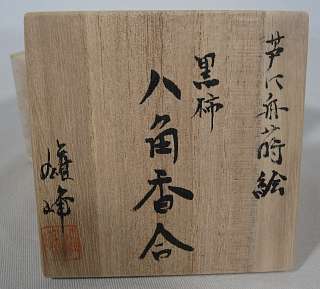 芦に舟蒔絵
黒柿
八角香合
峰